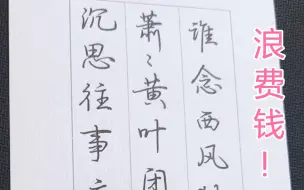 谁念西风
萧々黄叶闭
沉思往事
浪费钱！